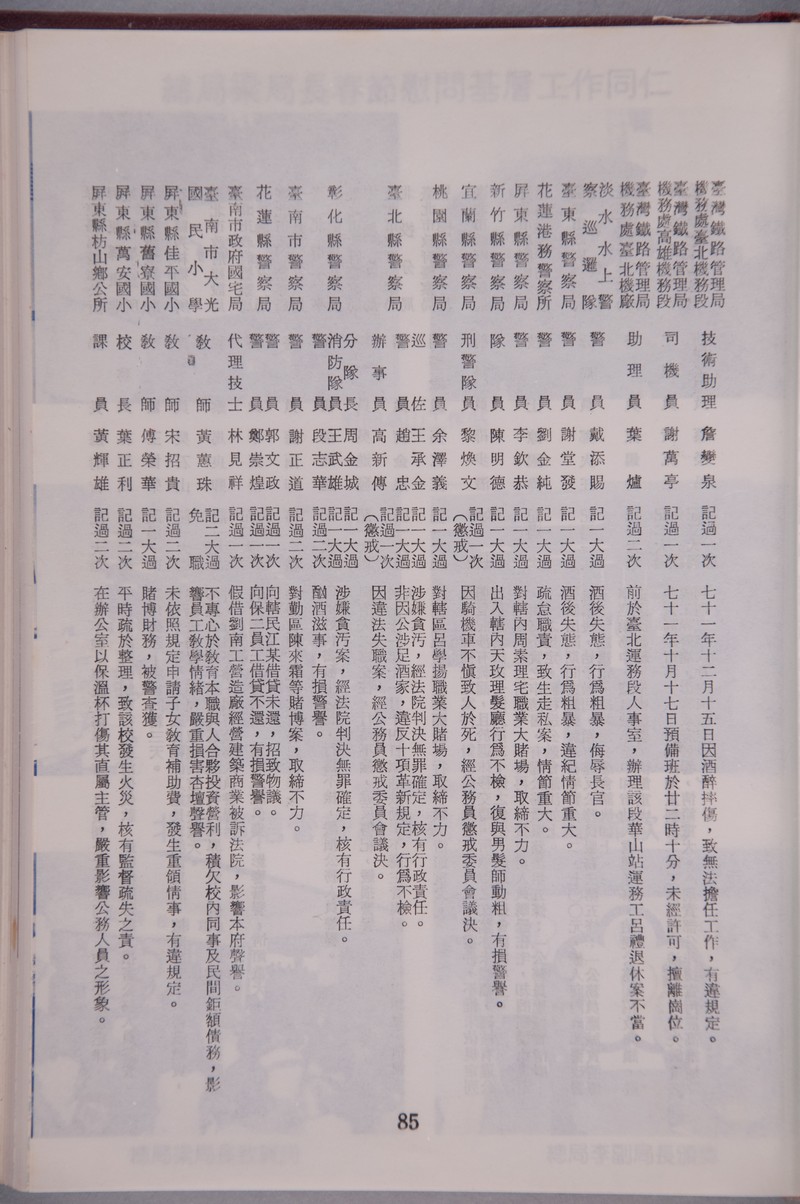 臺灣鐵路管理局機務處臺北機務段 技術助理 詹變泉 記過一次 七十一年十二月十五日因酒醉摔傷，致無法擔任工作，有違規定。
臺灣鐵路管理局機務處高雄機務段 司機員 謝萬亭 記過一次 七十一年十月十七日預備班於廿二時十分，未經許可，擅離崗位。
臺灣鐵路管理局機務處臺北機廠 助理員 葉爐 記過二次 前於臺北運務段人事室，辦理該段華山站運務工呂禮退休案不當。
淡水水上警察巡邏隊 警員 戴添賜 記一大過 酒後失態，行為粗暴，侮辱長官。
臺東縣警察局 警員 謝堂發 記一大過 酒後失態，行為粗暴，違紀情節重大。
花蓮港務警察所 警員 劉金純 記一大過 疏怠職責，致生走私案，情節重大。
屏東縣警察局 警員 李欽恭 記一大過 對轄內周素理宅職業大賭場，取締不力。
新竹縣警察局 隊員 陳明德 記一大過 出入轄內天玫理髮廳行為不檢，復與男髮師動粗，有損警譽。
宜蘭縣警察局 刑警隊員 黎煥文 記過一次（懲戒） 因騎機車不慎致人於死，經公務員懲戒委員會議決。
桃園縣警察局 警員 余澤義 記一大過 對轄區呂學揚職業大賭場，取締不力。
臺北縣警察局 巡佐 王承金 記一大過 涉嫌貪污，經法院判決無罪確定，核有行政責任。
警員 趙忠 記一大過 非因公涉足酒家，違反十項革新規定，行為不檢。
辦事員 高新傳 記過一次（懲戒） 因違法失職案，經公務員懲戒委員會議決。
彰化縣警察局 分隊長 周金城 記一大過 涉嫌貪污案，經法院判決無罪確定，核有行政責任。
消防隊員 王武雄 記一大過
警員 段志華 記過二次 酗酒滋事，有損警譽。
臺南市警察局 警員 謝正道 記過二次 對勤區陳來霜等賭博案，取締不力。
花蓮縣警察局 警員 郭文政 記過一次 向轄民江某借貸未還，招致物議。
警員 鄭崇煌 記過一次 向保二員工借貸不還，有損警譽。
臺南市政府國宅局 代理技士 林見祥 記過一次 假借劉南工營造廠經營建築商業被訴法院，影響本府聲譽。
臺南市大光國民小學 教師 黃蕙珠 記二大過免職 不專心於教育本職與人合夥投資營利，積欠校內同事及民間鉅額債務，影響員工教學情緒，嚴重損害杏壇聲譽。
屏東縣佳平國小 教師 宋招貴 記過二次 未依照規定申請子女教育補助費，發生重領情事，有違規定。
屏東縣舊寮國小 教師 傅榮華 記一大過 賭博財務，被警查獲。
屏東縣萬安國小 校長 葉正利 記過二次 平時疏於整理，致該校發生火災，核有監督疏失之責。
屏東縣枋山鄉公所 課員 黃輝雄 記過二次 在辦公室以保溫杯打傷其直屬主管，嚴重影響公務人員之形象。
85